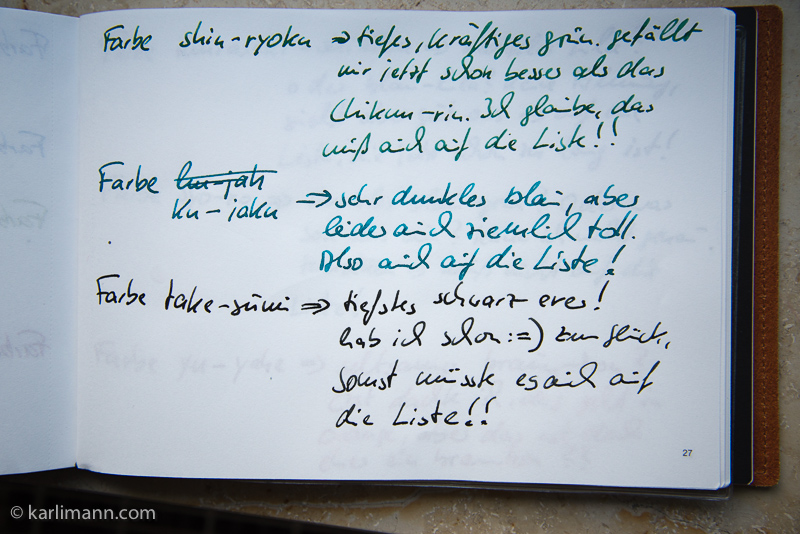 Farbe shin-ryoku ⇒ tiefes, kräftiges grün. gefällt
mir jetzt schon besser als das
Chikun-rin. Ich glaube, das
muß auch auf die Liste!!
Farbe ku-jah
ku-jaku ⇒ sehr dunkles blau, aber
leider auch ziemlich toll.
Also auch auf die Liste!
Farbe take-sumi ⇒ tiefstes schwarz
hab ich schon :=) zum glück,
sonst müsste es auch auf
die Liste!!
27
© karlimann.com